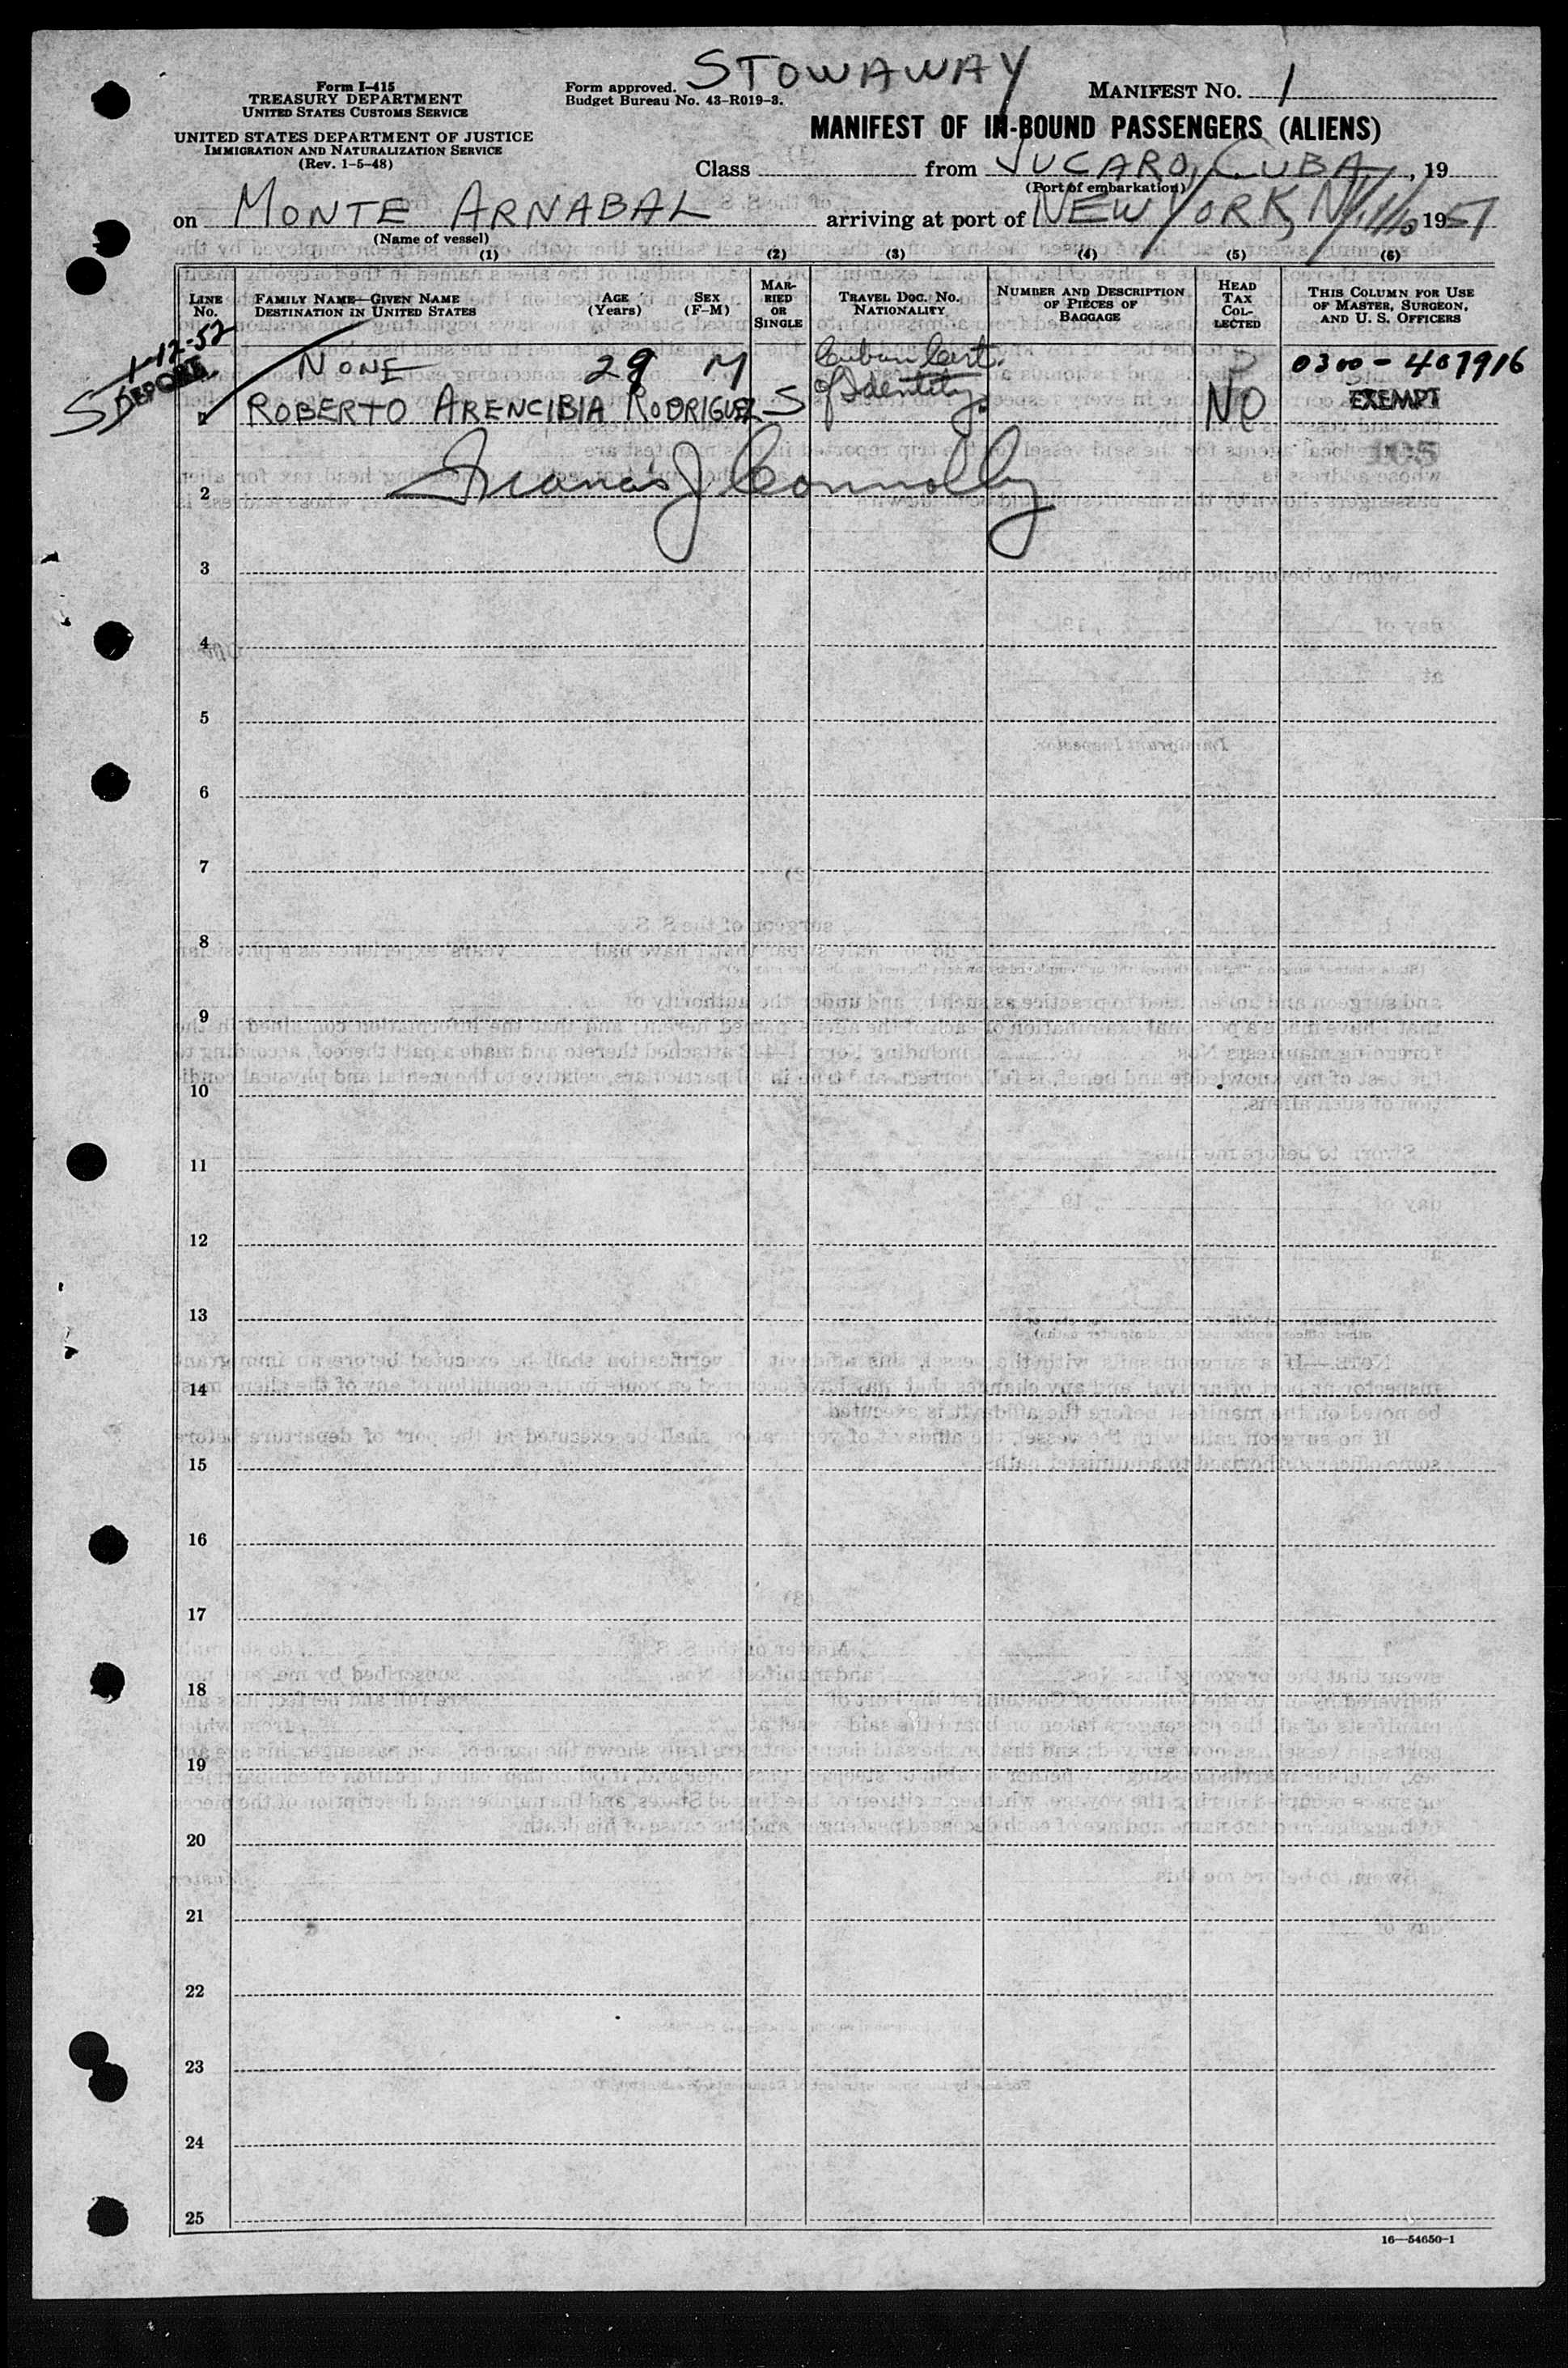 STOWAWAY
Form I-415
TREASURY DEPARTMENT
UNITED STATES CUSTOMS SERVICE
UNITED STATES DEPARTMENT OF JUSTICE
IMMIGRATION AND NATURALIZATION SERVICE
(Rev. 1-5-48)
Form approved.
Budget Bureau No. 43-R019-3.
MANIFEST NO. 1
MANIFEST OF IN-BOUND PASSENGERS (ALIENS)
Class from JUCARO, CUBA, 19
(Port of embarkation)
on MONTE ARNABAL arriving at port of NEW YORK, N.Y. 1951
(Name of vessel)
(1) (2) (3) (4) (5) (6)
LINE No.
FAMILY NAME—GIVEN NAME
DESTINATION IN UNITED STATES
AGE (Years)
SEX (F-M)
MARRIED OR SINGLE
TRAVEL DOC. NO.
NATIONALITY
NUMBER AND DESCRIPTION OF PIECES OF BAGGAGE
HEAD TAX COLLECTED
THIS COLUMN FOR USE OF MASTER, SURGEON, AND U. S. OFFICERS
1-12-52
DEPORT
NONE 29 M Cuban Cert. 0300-407916
ROBERTO ARENCIBIA RODRIGUEZ S of Identity. NO EXEMPT
105
Francis J Connolly
2
3
4
5
6
7
8
9
10
11
12
13
14
15
16
17
18
19
20
21
22
23
24
25
16—54650-1